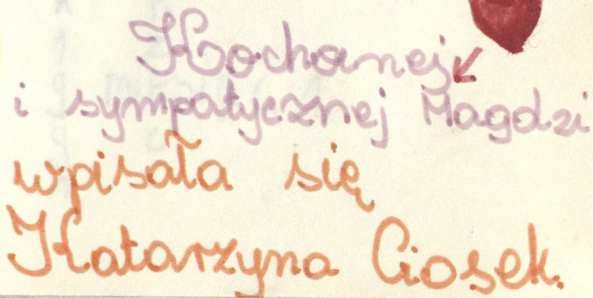 Kochanej
i sympatycznej Magdzi
wpisała się
Katarzyna Ciosek.